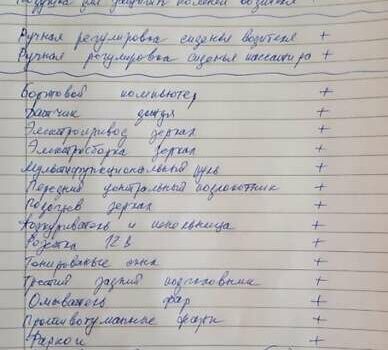 Подушка для защиты коленей водителя
Ручная регулировка сиденья водителя +
Ручная регулировка сиденья пассажира +
Бортовой компьютер +
Датчик дождя +
Электропривод зеркал +
Электросборка зеркал +
Мультифункциональный руль +
Передний центральный подлокотник +
Подогрев зеркал +
Прикуриватель и пепельница +
Розетка 12 В +
Тонированые окна +
Третий задний подголовник +
Омыватель фар +
Противотуманные фары +
Фаркоп +